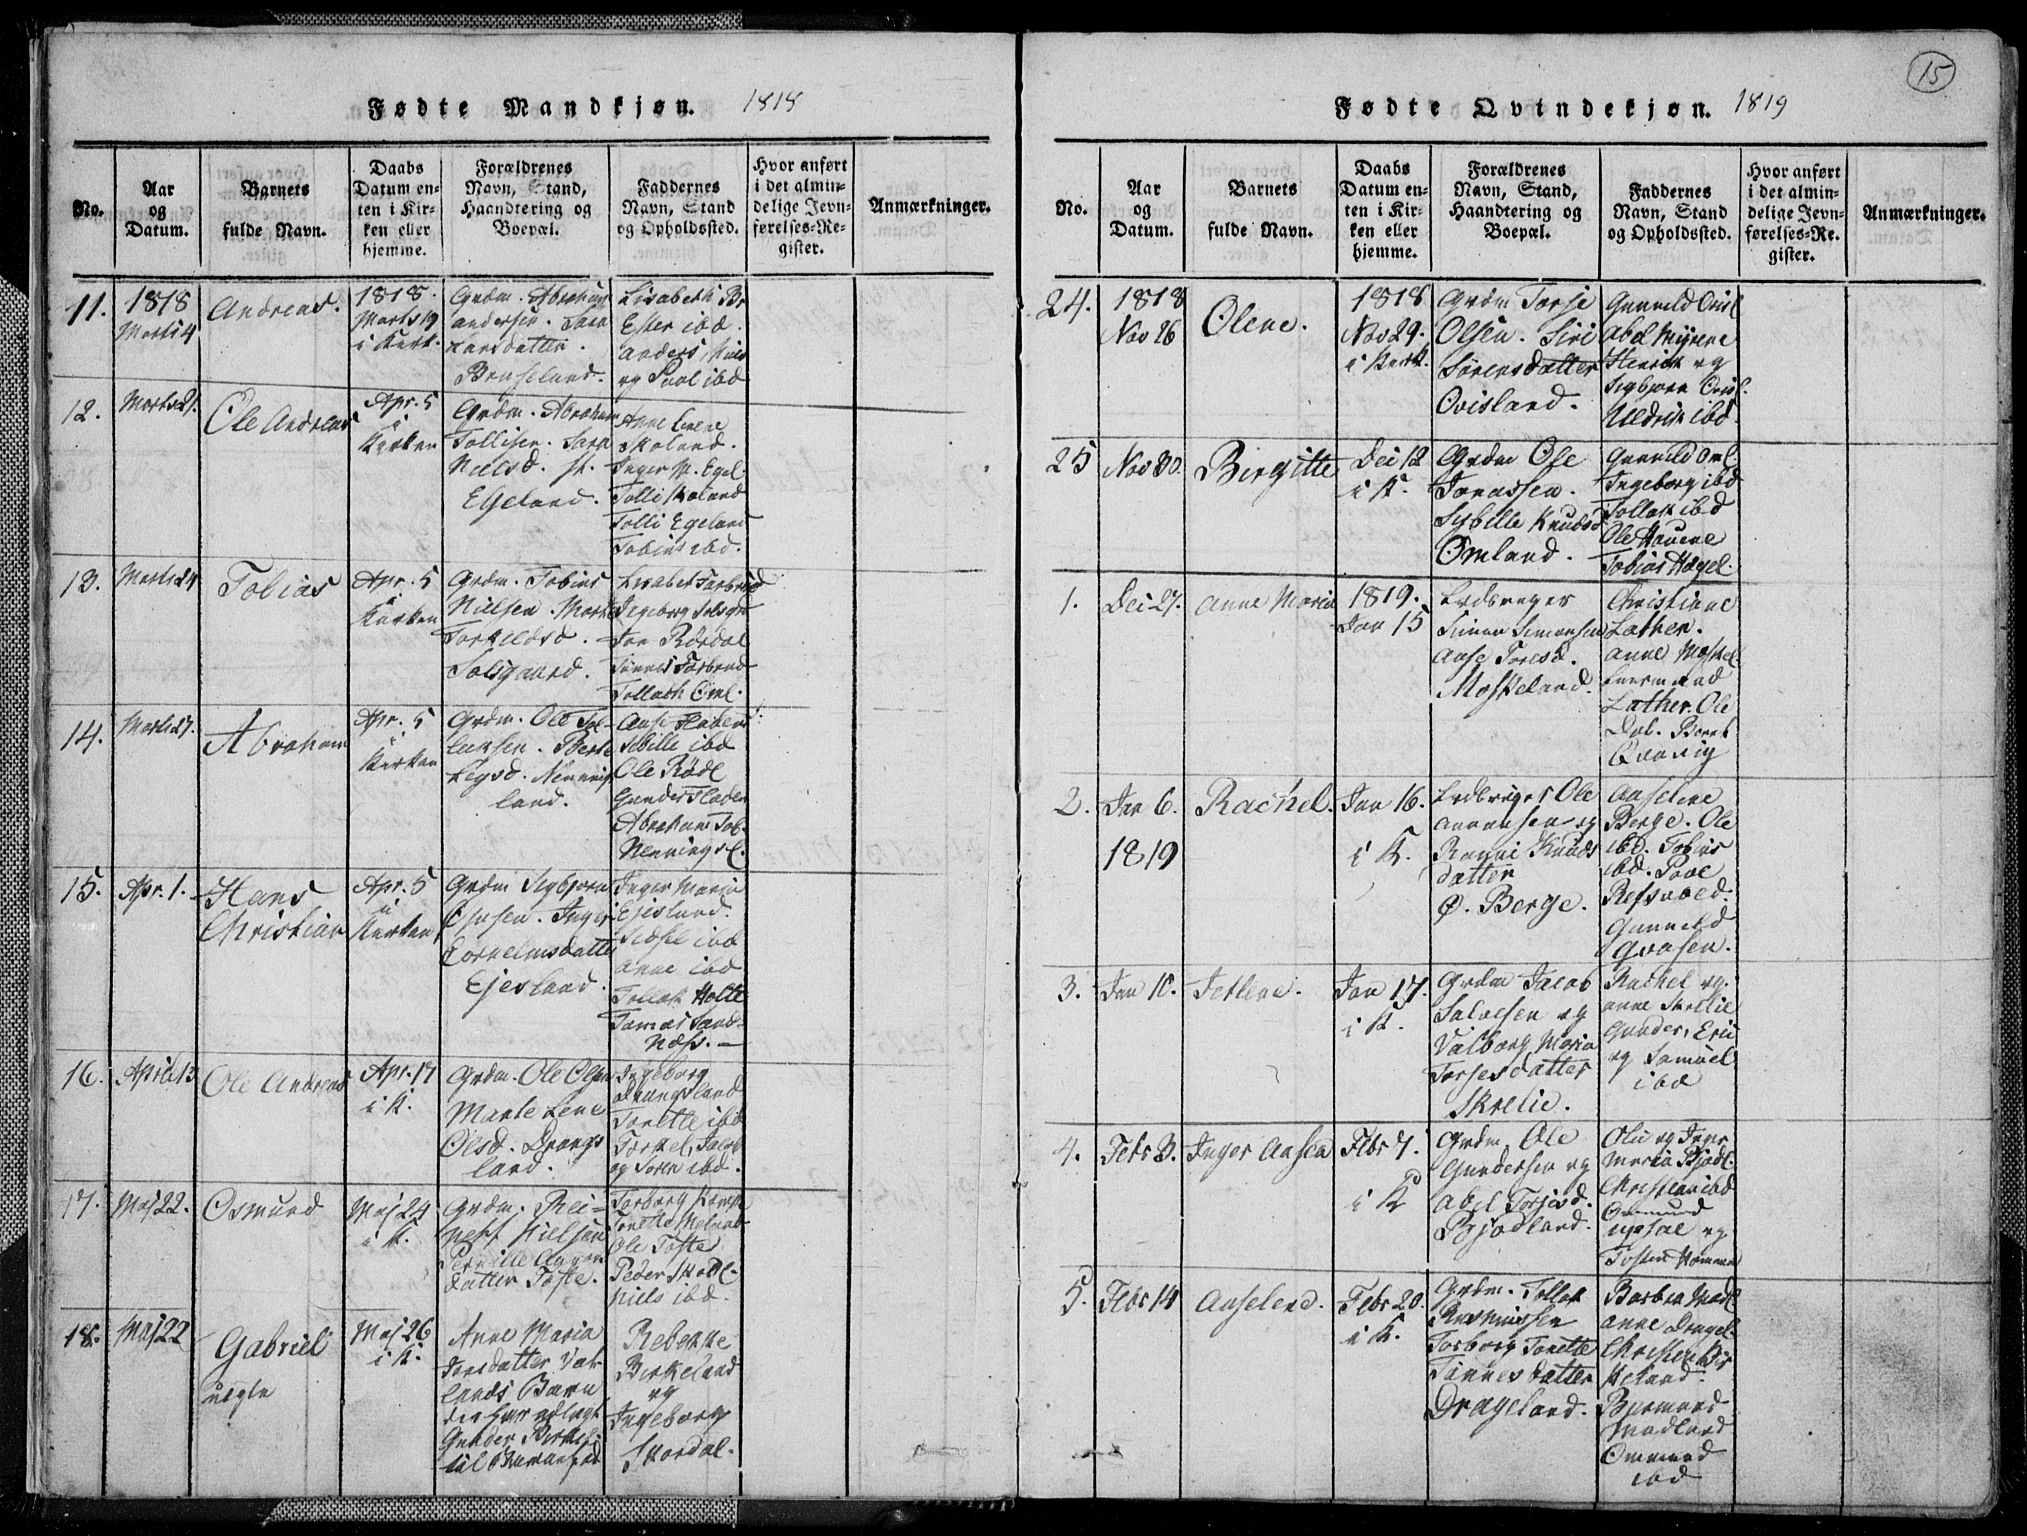 Fødte Mandkjøn. 1818
No.
Aar
og
Datum.
Barnets
fulde Navn.
Daabs
Datum en-
ten i Kir-
ken eller
hjemme.
Forældrenes
Navn, Stand,
Haandtering og
Boepæl.
Faddernes
Navn, Stand
og Opholdssted.
Hvor anført
i det almin-
delige Jevn-
førelses-Re-
gister.
Anmærkninger.
11.
1818
Marts 4
Andreas.
1818.
Marts 19
i Kirk.
Grdm. Abraham
Andersen. Sara
Larsdatter.
Bruseland.
Lisabeth Br
Ester ibd.
Anders
og Poul ibd
12.
Marts 21.
Ole Andreas
Apr. 5
i
Kirken
Grdm. Abraham
Tollisen. Sara
Nielsd. st.
Egeland.
Anne Lene
Skoland.
Inger M. Egel.
Tolli Skoland
Tolli Egeland
Tobias ibd.
13.
Marts 24
Tobias
Apr. 5
i
Kirken
Grdm. Tobias
Nielsen. Marte
Torkildsd.
Solsgaard.
Lisabet
Ingeborg
Jon Rørdal
Tollach Oml.
14.
Marts 27.
Abraham
Apr. 5
i
Kirken
Grdm. Ole Tol-
laksen. Berte
Nennings
land.
Aase
Sebille ibd
Ole Rødl
Gunder
Abraham Tob.
Nenningsl.
15.
Apr. 1.
Hans
Christian
Apr. 5
i
Kirken
Grdm Sigbjorn
Inger
Corneliusdatter
Ejesland.
Inger Maria
Ejesland.
Sidsel ibd
Anne ibd
Tollak Holte
Tomas Sand-
næss.
16.
April 13
Ole Andreas
Apr. 17
i K.
Grdm. Ole Olsen
Marte Lene
Olsd. Drangs
land.
Ingeborg
Drangsland
Tonette ibd
Torkel, Jacob
og Soren ibd.
17.
Maj 22.
Osmund
Maj 24
i K.
Grdm. Rei-
nert Nielsen
Pernille Aanon
datter Tofte.
Torborg
Tonette
Ole Tofte
Peder
Niels ibd.
18.
Maj 22
Gabriel
uægte
Maj 26
i K.
Anne Maria
Jensdatter Vat-
lands Barn
der har udlagt
Gunder Birkel.
til Barnefad
Rebekke
Birkeland
og
Ingeborg
Skordal.
15
Fødte Qvindekjøn. 1819
No.
Aar
og
Datum.
Barnets
fulde Navn.
Daabs
Datum en-
ten i Kir-
ken eller
hjemme.
Forældrenes
Navn, Stand,
Haandtering og
Boepæl.
Faddernes
Navn, Stand
og Opholdssted.
Hvor anført
i det almin-
delige Jevn-
førelses-Re-
gister.
Anmærkninger.
24.
1818
Nov 26
Olene.
1818.
Nov 29.
i Kirk.
Grdm Torje
Olsen. Siri
Sørensdatter
Ovisland.
Gunnild Ovisl
Abel Myrene
Henrik og
Sigbjorn Ovisl.
Uldrik ibd.
25
Nov 30.
Birgitte
Dec 12
i K.
Grdm Ole
Jonassen.
Sybille Knudsd
Omland.
Gunnild Oml.
Ingeborg ibd
Tollak ibd
Ole Hauene
Tobias Hægel.
1.
Dec 27.
Anne Maria
1819.
Jan 15
Simon Simonsen
Aase Toresd.
Moskeland.
Christiane
Lather.
Anne Moskel.
Lather. Ole
Qvavig
2.
Jan 6.
1819
Rachel.
Jan 16.
i K.
Ledsager Ole
Aanonsen og
Ranni Knuds
datter
Ø. Berge.
Aaselene
Berge. Ole
ibd. Tobias
ibd. Poul
Refsvoed.
Gunnild
Qvaasen.
3.
Jan 10.
Jetlene.
Jan 17.
i K.
Grdm Jacob
Salvesen og
Valborg Maria
Torjesdatter
Skrelie.
Rachel og
Anne Skrelie
Gunder, Eric
og Samuel
ibd
4.
Febr 3.
Inger Aasen
Febr 7.
i K
Grdm Ole
Gundersen og
Abel Torjesd.
Bjodland.
Olu og Inger
Maria Bjodl.
Christian ibd
Ommund
Upsal og
Tosten Homme
5.
Febr 14
Aaselene.
Febr 20.
i K.
Grdm. Tollak
Rasmussen
Torborg Tonette
Tønnesdatter
Drageland.
Barbra Madl
Anne Dragel.
Christen Bir
keland.
Bermund
Madland
Ommund
ibd